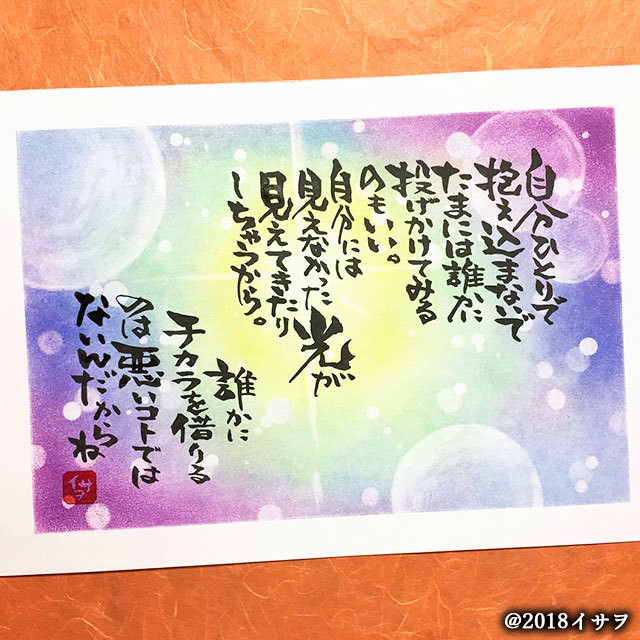 自分ひとりで
抱え込まないで
たまには誰かに
投げかけてみる
のもいい。
自分には
見えなかった光が
見えてきたり
しちゃうから。
誰かに
チカラを借りる
のは悪いコトでは
ないんだからね
イサヲ
@2018イサヲ